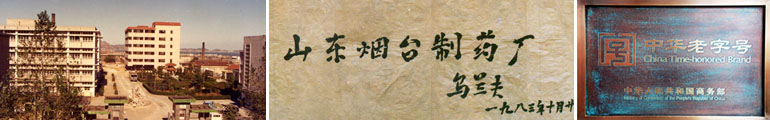 山东烟台制药厂
乌兰夫
一九八三年十月廿
中华老字号
China Time-honored Brand
中华人民共和国商务部
Ministry of Commerce of the People's Republic of China